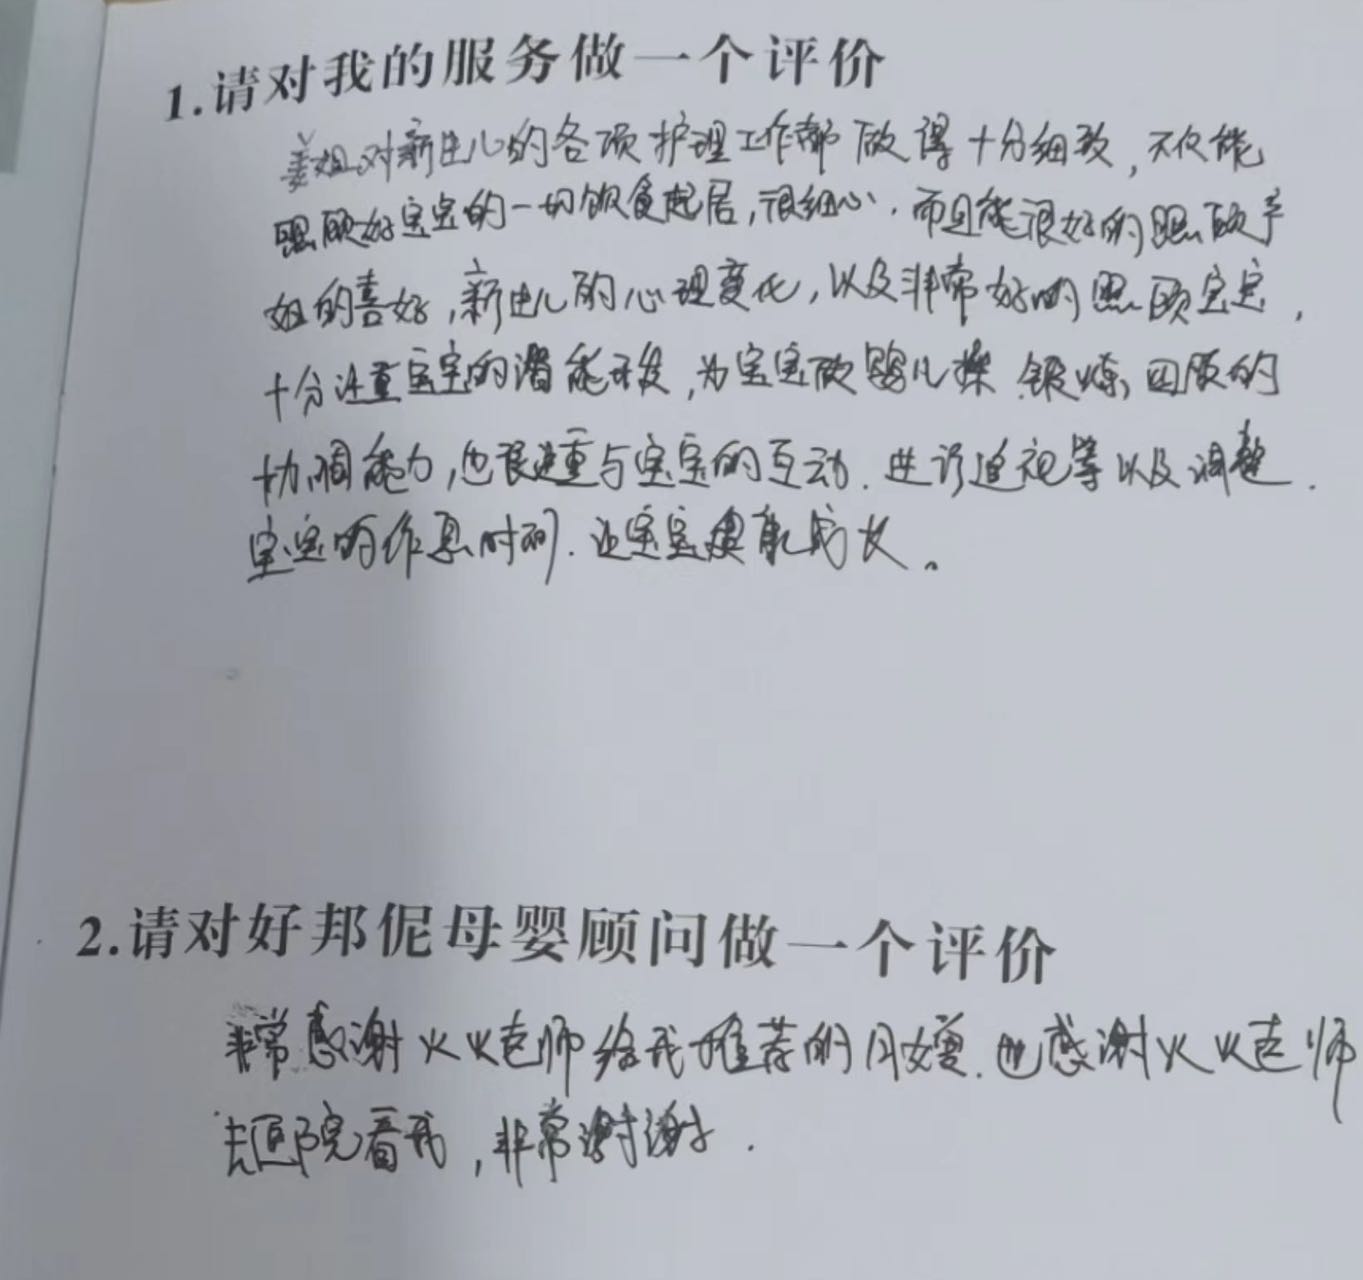 1.请对我的服务做一个评价
姜姐对新生儿的各项护理工作都做得十分细致,不仅能
照顾好宝宝的一切饮食起居,很细心,而且能很好的照顾产
妇的喜好,新生儿的心理变化,以及非常好的照顾宝宝,
十分注重宝宝的潜能开发,为宝宝做婴儿操 锻炼 四肢的
协调能力,也很注重与宝宝的互动.进行追视等以及调整.
宝宝的作息时间.让宝宝健康成长。
2.请对好邦伲母婴顾问做一个评价
非常感谢火火老师给我推荐的月嫂.也感谢火火老师
去医院看我,非常谢谢.